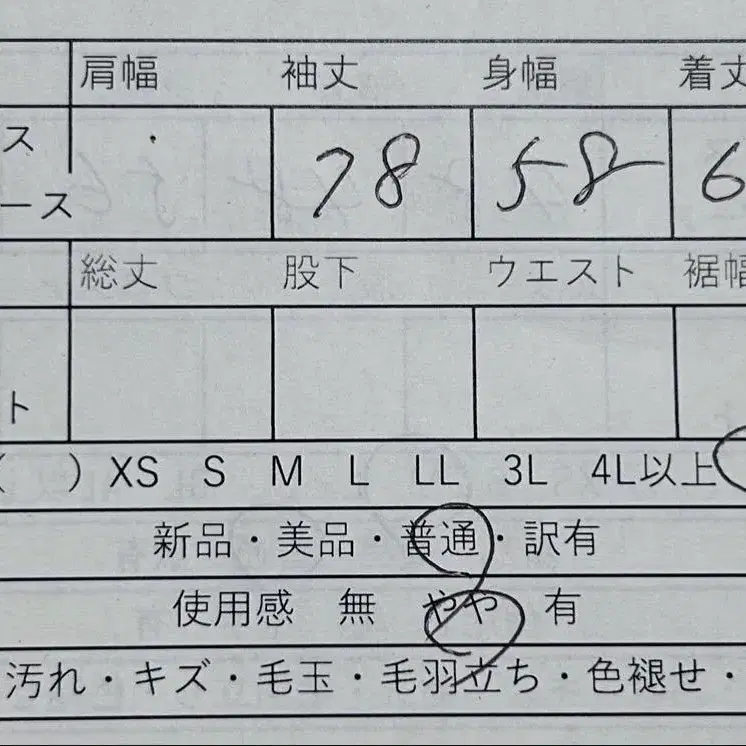 肩幅 袖丈 身幅 着丈
ス
78 58 6
ース
総丈 股下 ウエスト 裾幅
ト
( ) XS S M L LL 3L 4L以上
新品・美品・普通・訳有
使用感 無 やや 有
汚れ・キズ・毛玉・毛羽立ち・色褪せ・